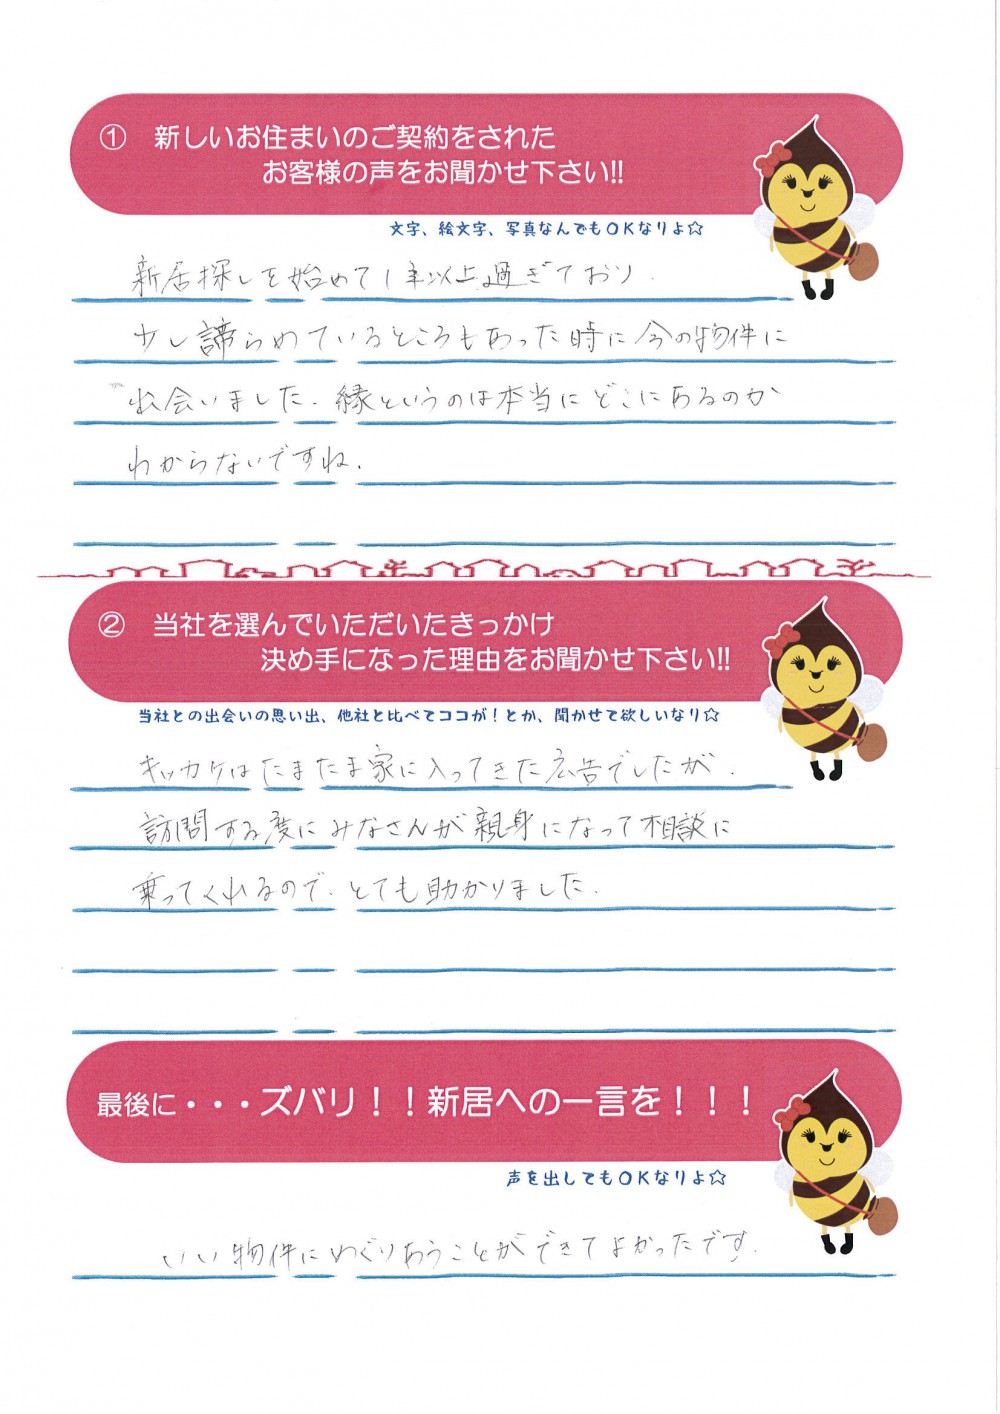 ① 新しいお住まいのご契約をされた
お客様の声をお聞かせ下さい!!
文字、絵文字、写真なんでもOKなりよ☆
新居探しを始めて1年以上過ぎており、
少し諦らめているところもあった時に今の物件に
出会いました。縁というのは本当にどこにあるのか
わからないですね。
② 当社を選んでいただいたきっかけ
決め手になった理由をお聞かせ下さい!!
当社との出会いの思い出、他社と比べてココが！とか、聞かせて欲しいなり☆
キッカケはたまたま家に入ってきた広告でしたが、
訪問する度にみなさんが親身になって相談に
乗ってくれるので、とても助かりました。
最後に・・・ズバリ！！新居への一言を！！！
声を出してもOKなりよ☆
いい物件にめぐりあうことができてよかったです。